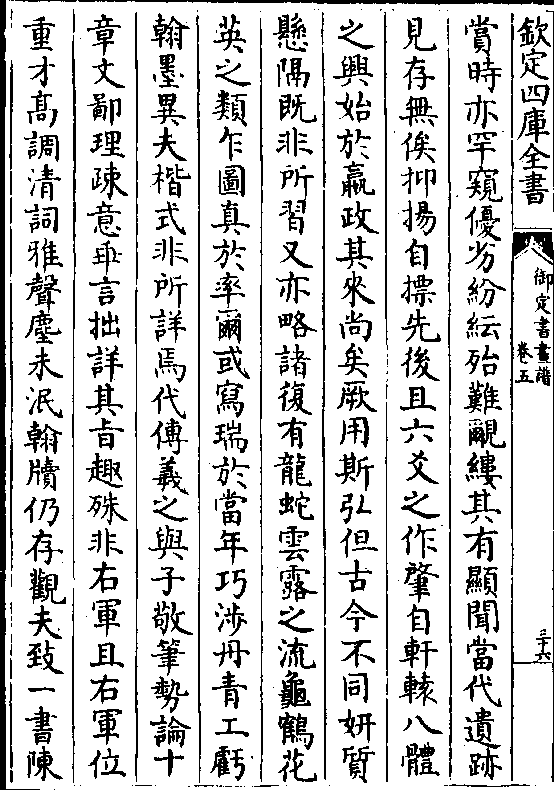 欽定四庫全書
御定書畫譜
卷五
三十六
賞時亦罕窺優劣紛紜殆難覼縷其有顯聞當代遺跡
見存無俟抑揚自摽先後且六爻之作肇自軒轅八體
之興始於嬴政其來尚矣厥用斯弘但古今不同妍質
懸隔既非所習又亦略諸復有龍蛇雲露之流龜鶴花
英之類乍圖真於率爾或寫瑞於當年巧涉丹青工虧
翰墨異夫楷式非所詳焉代傳羲之與子敬筆勢論十
章文鄙理疎意乖言拙詳其旨趣殊非右軍且右軍位
重才髙調清詞雅聲塵未泯翰牘仍存觀夫致一書陳